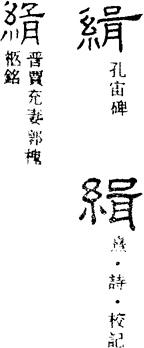 緝
孔宙碑
緝
熹・詩・校記
緝
晉賈充妻郭槐
柩銘